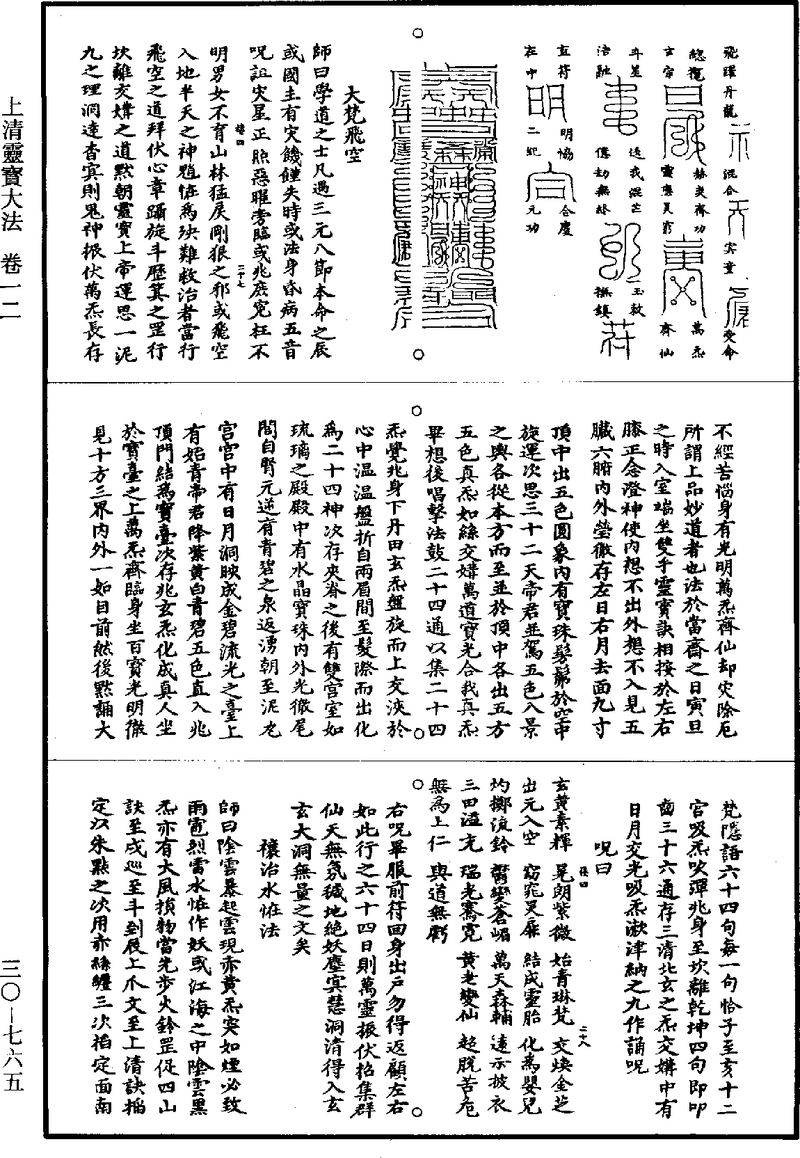 上清靈寶大法　卷一二
三〇—七六五
飛躍丹龍　混合　冥童　受命
總覽　赫奕齊功　萬炁
玄帝　靈應昊蒼　齊仙
斗星　透我混茫　玉敕
洽融　億劫無終　撫鎮
直符　明愶　合慶
在中　二紀　元功
大梵飛空
師曰學道之士凡遇三元八節本命之辰
或國主有災饑饉失時或法身昏病五音
呪詛災星正照惡曜旁臨或兆庶冤枉不
明男女不育山林猛戾剛狠之邪或飛空
入地半天之神魈恠爲殃難救治者當行
飛空之道拜伏心章躡旋斗歷箕之罡行
坎離交媾之道默朝靈寶上帝運思一泥
九之理洞達杳冥則鬼神振伏萬炁長存
不經苦惱身有光明萬炁齊仙却災除厄
所謂上品妙道者也法於當齋之日寅旦
之時入室端坐雙手靈寶訣相按於左右
膝正念澄神使内想不出外想不入見五
臟六腑内外瑩徹存左日右月去面九寸
頂中出五色圓象内有寶珠髣髴於空中
旋運次思三十二天帝君並駕五色八景
之輿各從本方而至並於頂中各出五方
五色真炁如絲交媾萬道寶光合我真炁
畢想後唱擊法鼓二十四通以集二十四
炁覺兆身下丹田玄炁盤旋而上交浹於
心中温温盤折自兩眉間至髮際而出化
爲二十四神次存夾脊之後有雙宫室如
琉璃之殿殿中有水晶寶珠内外光徹尾
閭自野元逆有青碧之泉返湧朝至泥丸
宫宫中有日月洞映成金碧流光之臺上
有始青帝君降紫黄白青碧五色直入兆
頂門結爲寶臺次存兆玄炁化成真人坐
於寶臺之上萬炁齊臨身坐百寶光明徹
見十方三界内外一如目前然後默誦大
梵隱語六十四句每一句恰子至亥十二
宫吸炁吹彈兆身至坎離乾坤四句即叩
齒三十六通存三清北玄之炁交媾中有
日月交光吸炁漱津納之九作誦呪
呪曰
玄黄素輝　晃朗紫微　始青琳梵　交煥金芝
出元入空　窈窕旻扉　結成靈胎　化爲嬰兒
灼擲流鈴　欝變蒼嵋　萬天森輔　遠示披衣
三田溢充　瑞光騫霓　黄老變仙　超脱苦危
無爲上仁　與道無虧
右呪畢服前符回身出户勿得返顧左右
如此行之六十四日則萬靈振伏招集羣
仙天無氛穢地絶妖塵冥慧洞清得入玄
玄大洞無量之文矣
禳治水恠法
師曰陰雲暴起雲現赤黄炁突如煙必致
雨雹烈雷水恠作妖或江海之中陰雲黑
炁亦有大風損物當先步火鈴罡從四山
訣至戌巡至斗到辰上爪文至上清訣掐
定以朱點之次用赤絲纏三次掐定面南